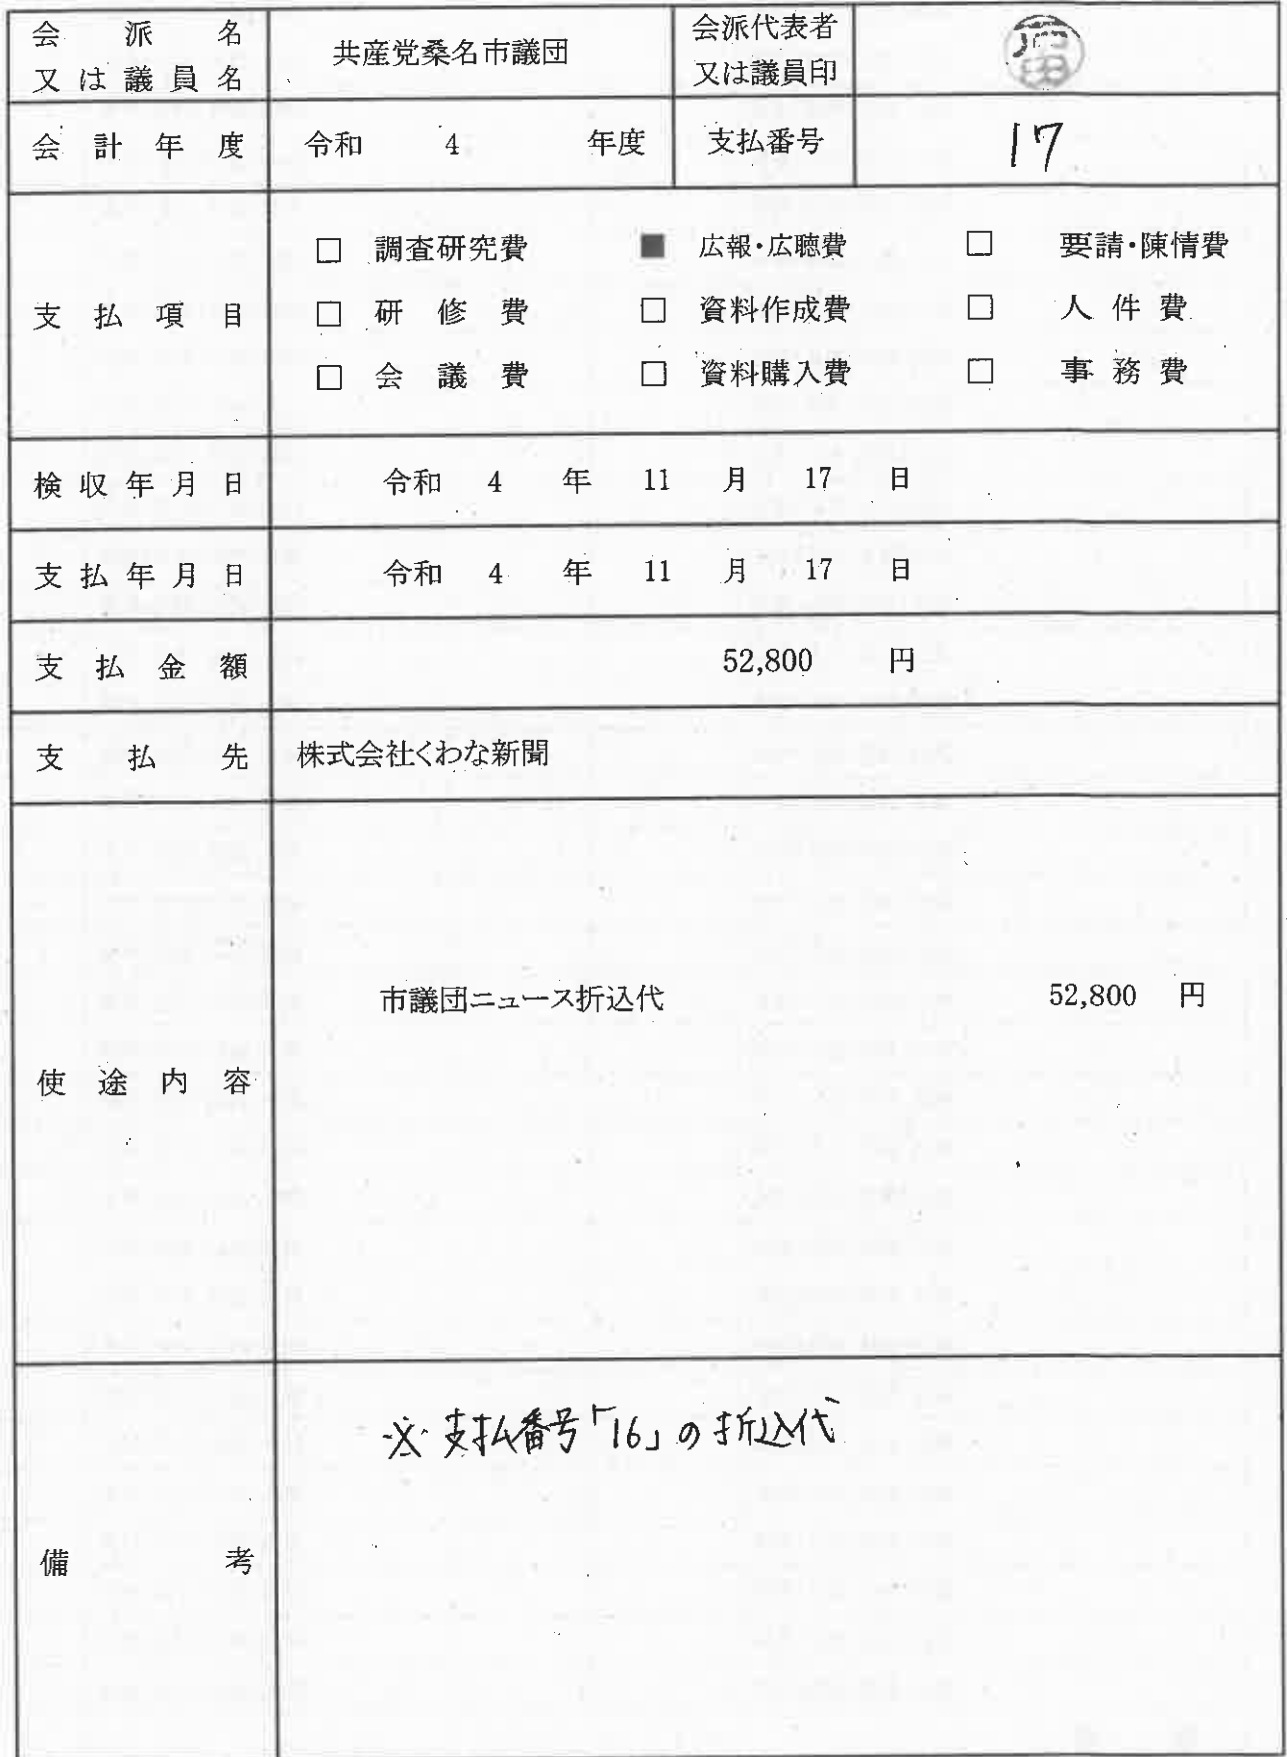 会派名
又は議員名
共産党桑名市議団
会派代表者
又は議員印
会計年度 令和 4 年度 支払番号 17
支払項目
□ 調査研究費 ■ 広報・広聴費 □ 要請・陳情費
□ 研修費 □ 資料作成費 □ 人件費
□ 会議費 □ 資料購入費 □ 事務費
検収年月日 令和 4 年 11 月 17 日
支払年月日 令和 4 年 11 月 17 日
支払金額 52,800 円
支払先 株式会社くわな新聞
使途内容
市議団ニュース折込代 52,800 円
備考
※支払番号「16」の折込代